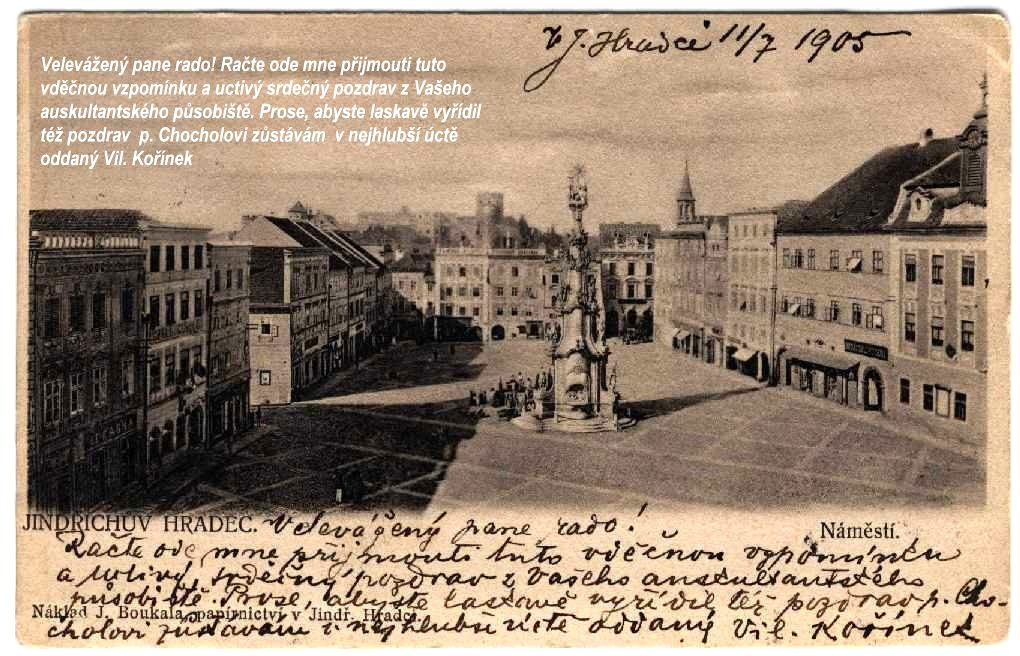 V J. Hradci 11/7 1905
Velevážený pane rado! Račte ode mne přijmouti tuto
vděčnou vzpomínku a uctivý srdečný pozdrav z Vašeho
auskultantského působiště. Prose, abyste laskavě vyřídil
též pozdrav p. Chocholovi zůstávám v nejhlubší úctě
oddaný Vil. Kořínek
JINDŘICHŮV HRADEC.
Náměstí.
Velevážený pane rado!
Račte ode mne přijmouti tuto vděčnou vzpomínku
a uctivý srdečný pozdrav z Vašeho auskultantského
působiště. Prose, abyste laskavě vyřídil též pozdrav p. Cho-
Náklad J. Boukala, papírnictví v Jindř. Hradci.
cholovi zůstávám v nejhlubší úctě oddaný Vil. Kořínek